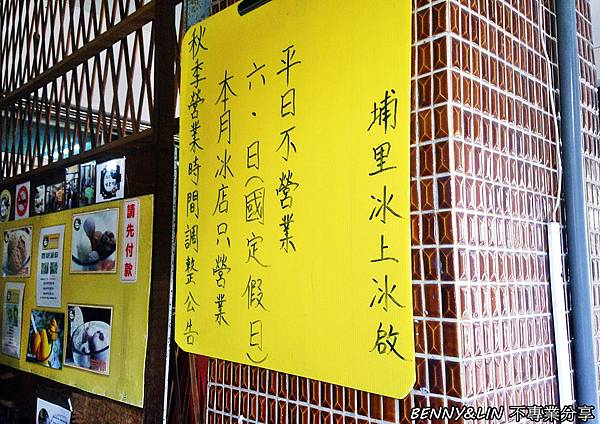 秋季營業時間調整公告
本月冰店只營業
六、日(國定假日)
平日不營業
埔里冰上冰啟
請先付款
BENNY&LIN 不專業分享